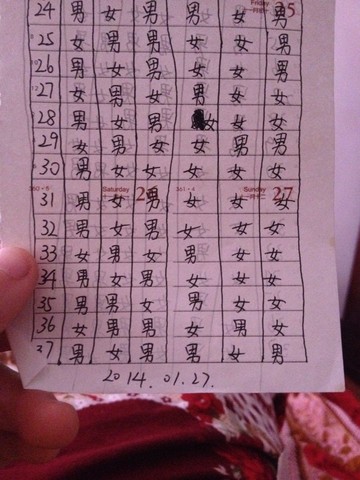 24 男 女 男 男 女 男
25 女 男 男 女 女 男
26 男 女 男 男 女 男
27 女 男 女 男 女 女
28 男 女 男 女 女 女
29 女 男 女 女 男 男
30 男 女 女 女 女 女
Saturday Sunday 27
31 男 女 男 女 女 女
32 男 女 男 女 女 女
33 女 男 女 男 女 女
34 男 女 男 女 女 女
35 男 男 女 男 女 女
36 女 男 男 女 男 女
37 男 女 男 男 女 男
2014.01.27.